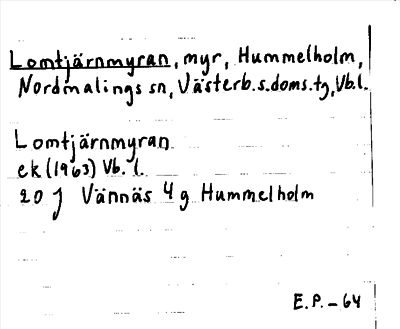 Lomtjärnmyran, myr, Hummelholm,
Nordmalings sn, Västerb.s.doms.tg, Vb.l.
Lomtjärnmyran
ek (1963) Vb. l.
20 J Vännäs 4 g Hummelholm
E.P. - 64